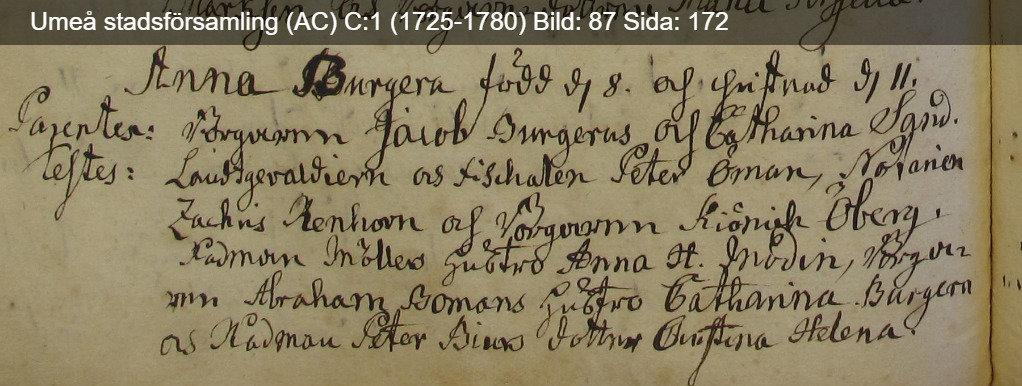 Umeå stadsförsamling (AC) C:1 (1725-1780) Bild: 87 Sida: 172
Anna Burgera född d 8. och christnad d 11.
Parentes: Borgaren Jacob Burgerus och Catharina Sund.
Testes: Landsgevaldiern och Fischalen Peter Öman, Notarien
Zachris Renhorn och Borgaren Öberg.
Rådman Möllers Hustro Anna H. Modin, Borga-
ren Abraham Bomans Hustro Catharina Burgera
och Rådman Peter Biurs dotter Christina Helena.